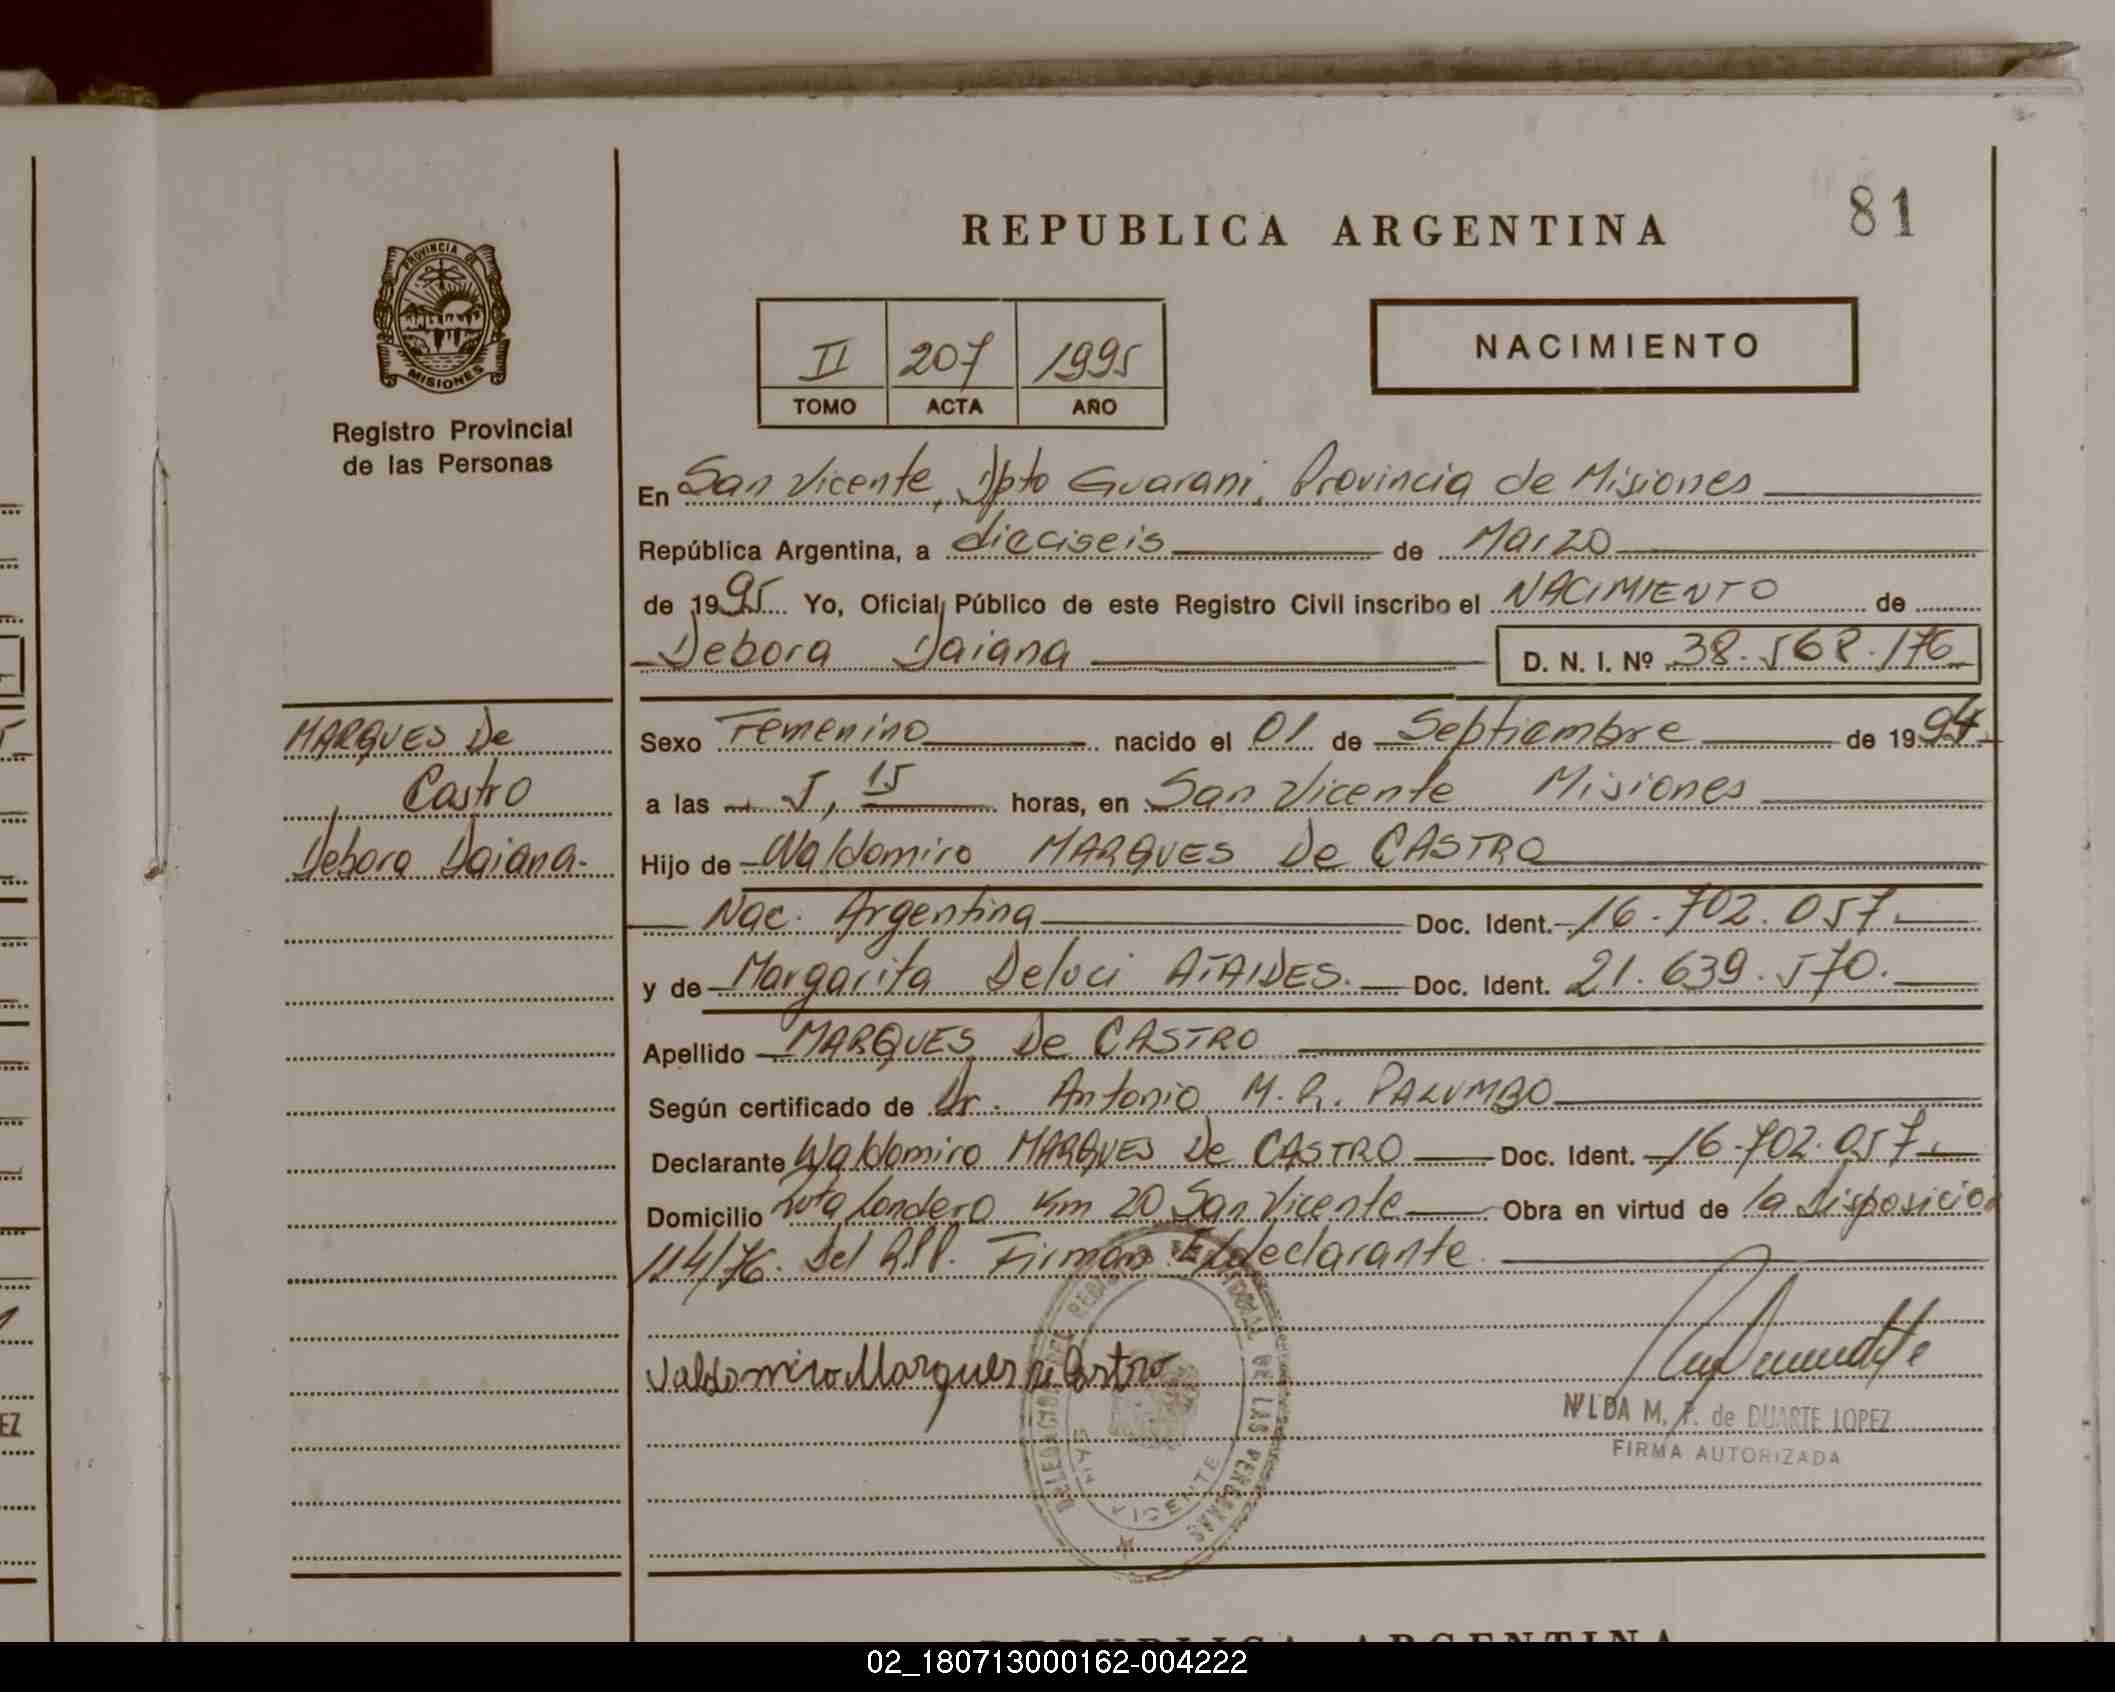 81
REPUBLICA ARGENTINA
PROVINCIA DE
MISIONES
Registro Provincial
de las Personas
II 207 1995
TOMO ACTA AÑO
NACIMIENTO
En San Vicente, Dpto Guarani, Provincia de Misiones
República Argentina, a dieciseis de Marzo
de 1995 Yo, Oficial Público de este Registro Civil inscribo el NACIMIENTO de
Debora Daiana D. N. I. Nº 38.568.176
MARQUES De
Castro
Debora Daiana.
Sexo Femenino nacido el 01 de Septiembre de 1994
a las 5,15 horas, en San Vicente Misiones
Hijo de Waldomiro MARQUES De CASTRO
Nac. Argentina Doc. Ident. 16.702.057.
y de Margarita Deluci ATAIDES. Doc. Ident. 21.639.570.
Apellido MARQUES De CASTRO
Según certificado de Dr. Antonio M. R. PALUMBO
Declarante Waldomiro MARQUES De CASTRO Doc. Ident. 16.702.057.
Domicilio Londero Km 20 San Vicente Obra en virtud de la Disposicion
114/76. Del R.P.P. Firman El declarante.
Valdomiro Marques de Castro
NILDA M. F. de DUARTE LOPEZ
FIRMA AUTORIZADA
DELEGACION DEL REGISTRO PROVINCIAL DE LAS PERSONAS
SAN VICENTE
EZ
REPUBLICA ARGENTINA
02_180713000162-004222